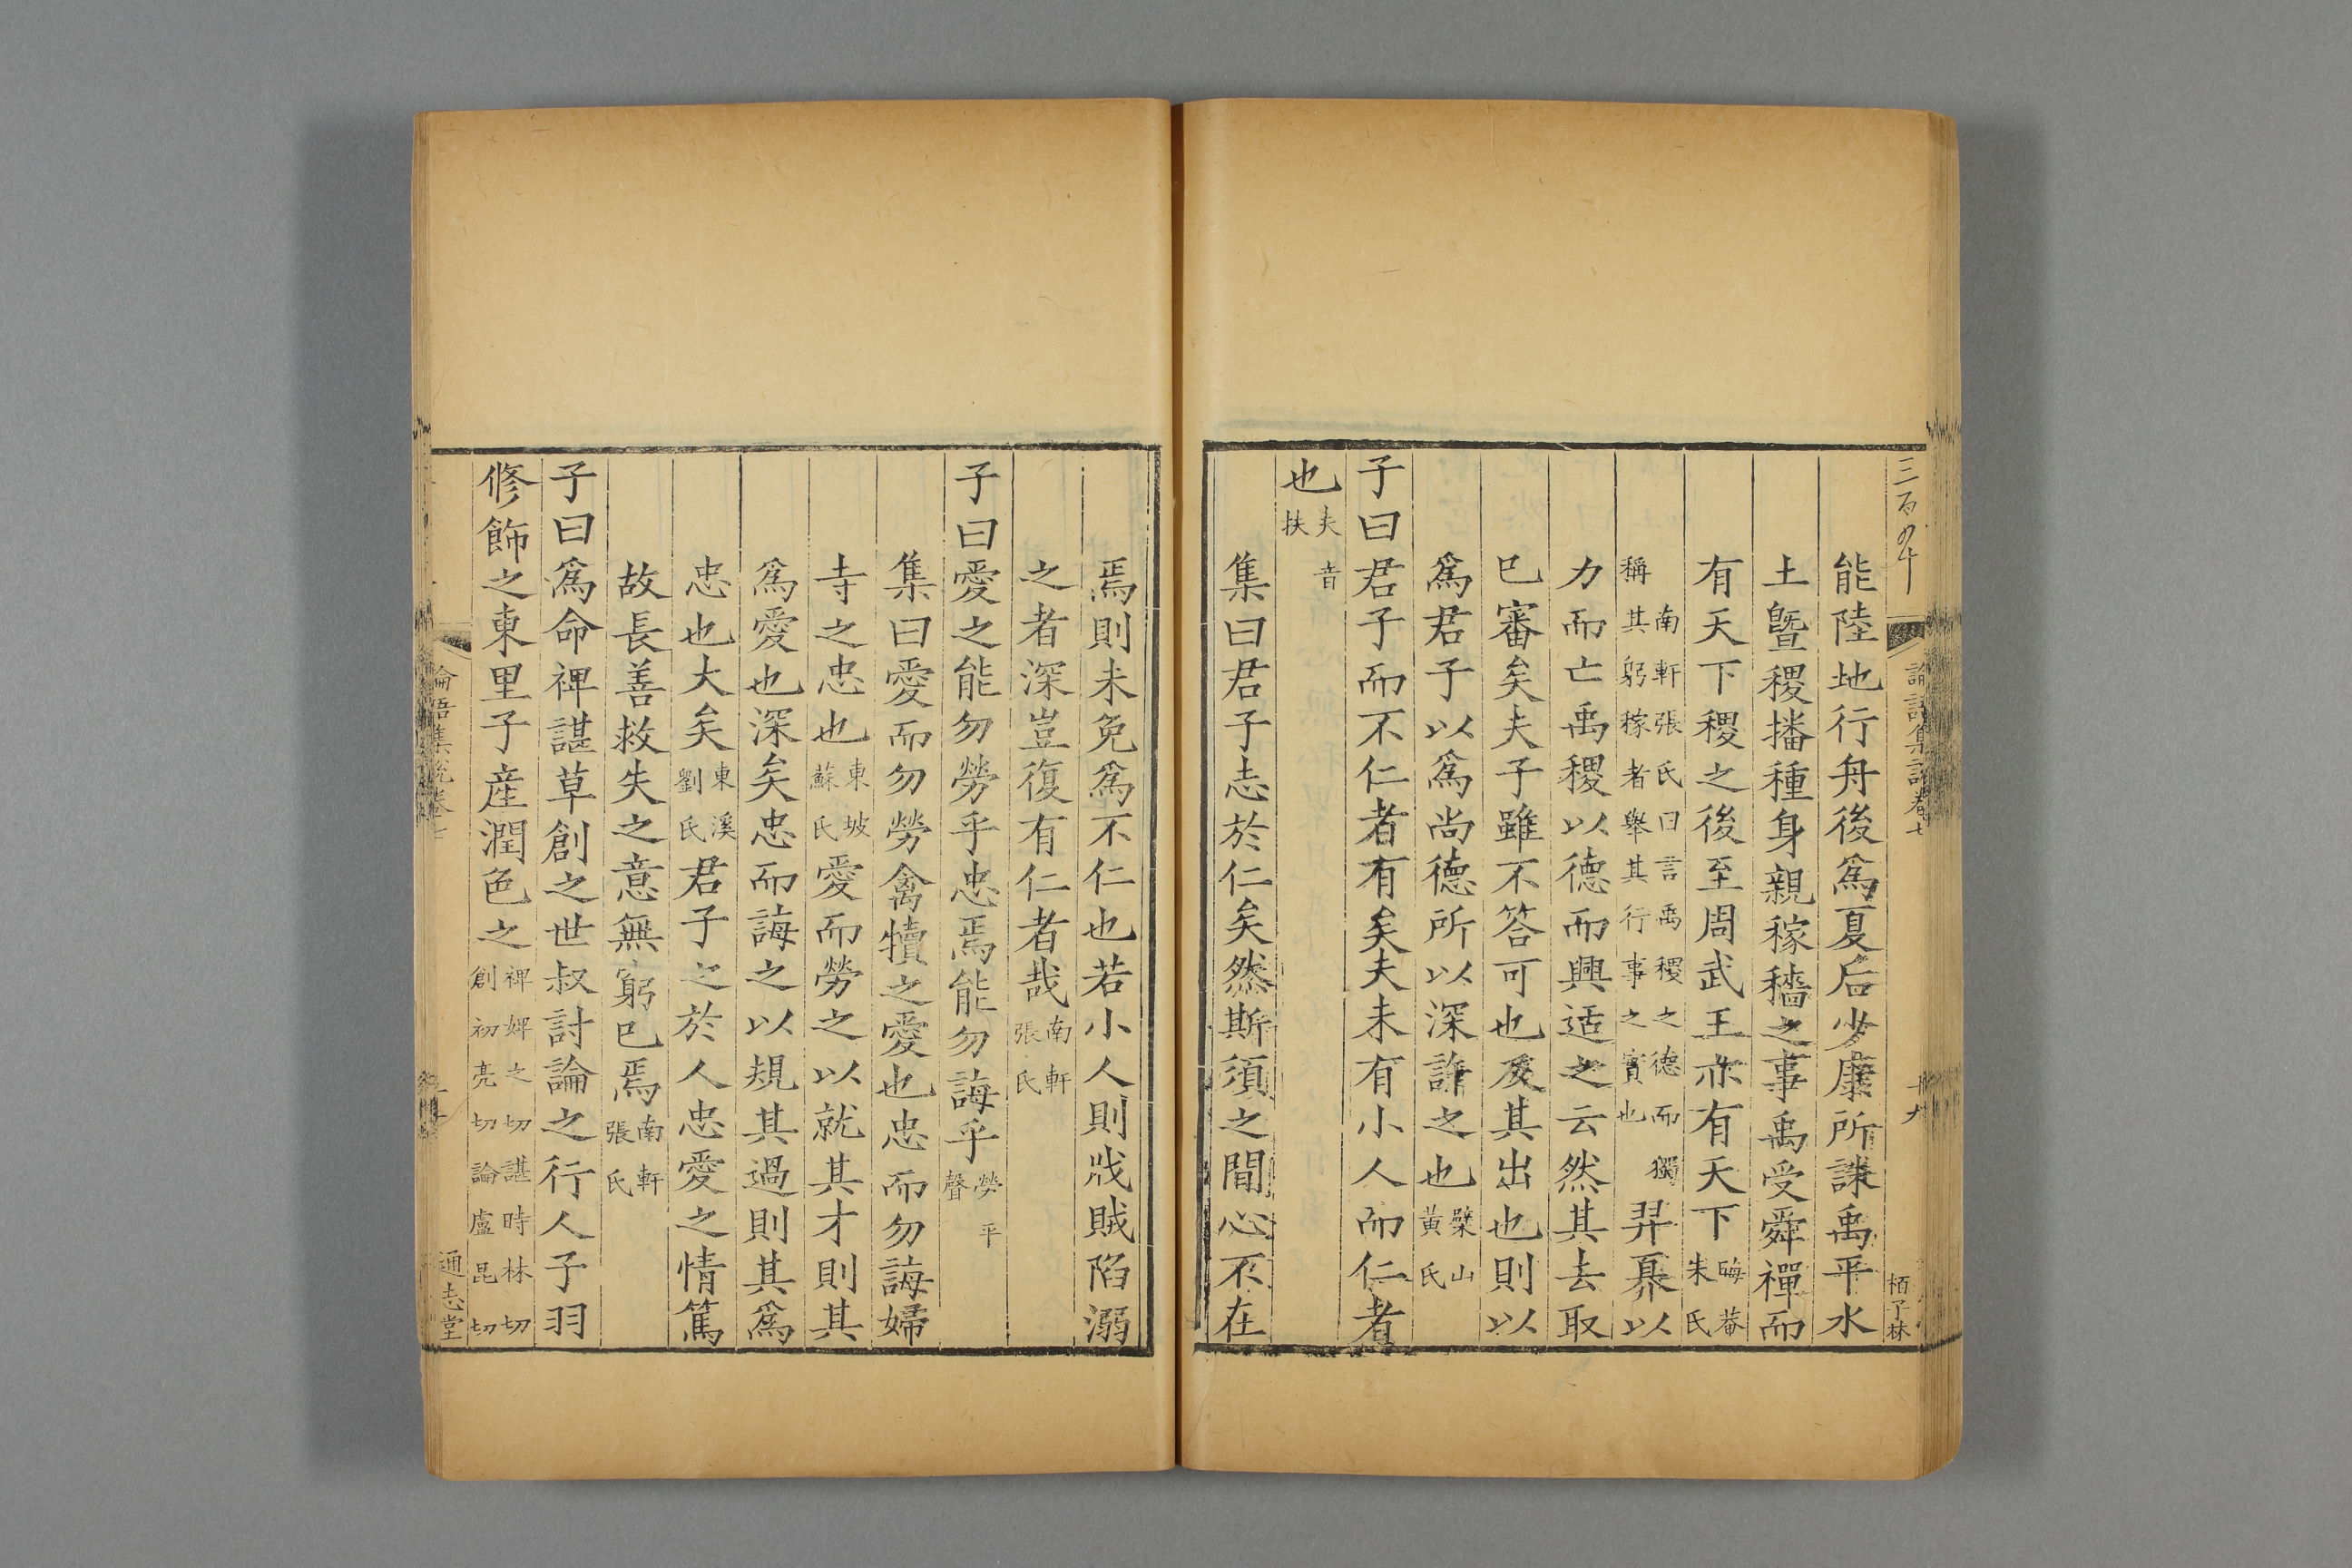 能陸地行舟後爲夏后少康所誅禹平水
土曁稷播種身親稼穡之事禹受舜禪而
有天下稷之後至周武王亦有天下晦菴朱氏
南軒張氏曰言禹稷之德而獨稱其躬稼者舉其行事之實也羿奡以
力而亡禹稷以德而興适之云然其去取
巳審矣夫子雖不答可也及其出也則以
爲君子以爲尚德所以深許之也檗山黄氏
子曰君子而不仁者有矣夫未有小人而仁者
也夫音扶
集曰君子志於仁矣然斯須之間心不在
焉則未免爲不仁也若小人則戕賊陷溺
之者深豈復有仁者哉南軒張氏
子曰愛之能勿勞乎忠焉能勿誨乎勞平聲
集曰愛而勿勞禽犢之愛也忠而勿誨婦
寺之忠也東坡蘇氏愛而勞之以就其才則其
爲愛也深矣忠而誨之以規其過則其爲
忠也大矣東溪劉氏君子之於人忠愛之情篤
故長善救失之意無窮巳焉南軒張氏
子曰爲命裨諶草創之世叔討論之行人子羽
修飾之東里子産潤色之裨婢之切諶時林切創初亮切論盧昆切
論語集說卷七
十九
通志堂